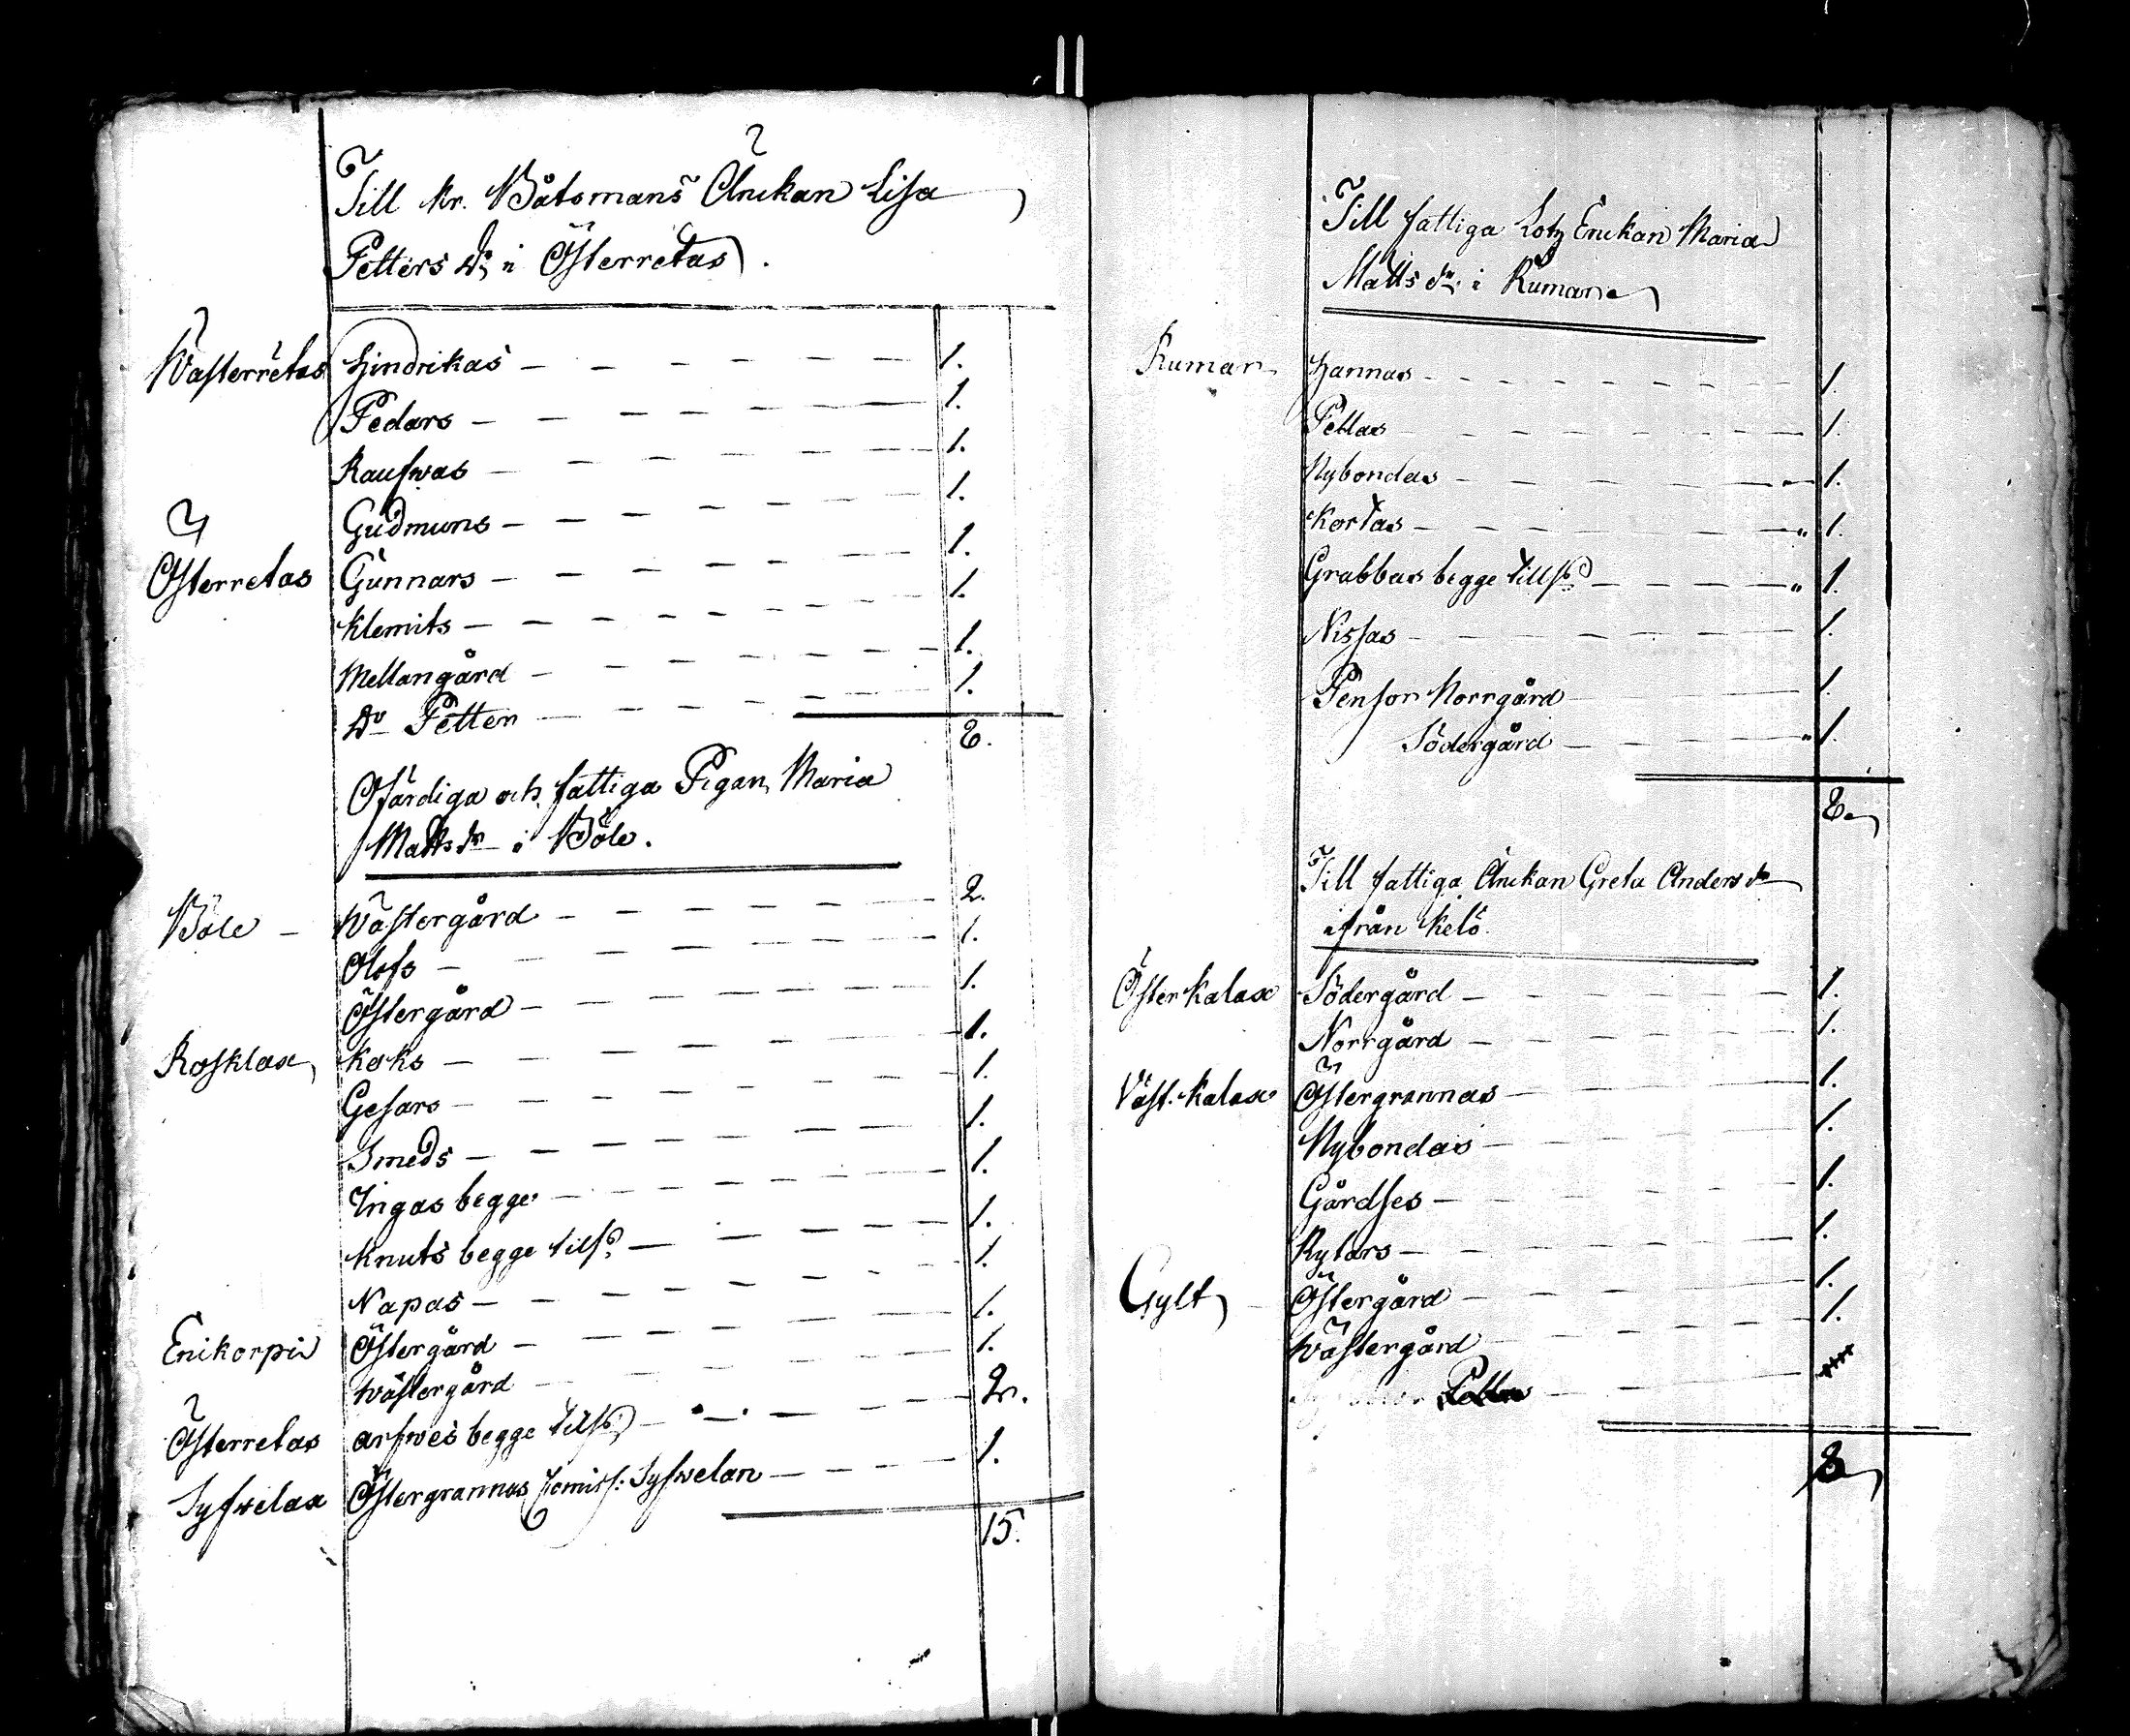 Till Kr. Båtsmans Änckan Lisa
Petters Dr i Österretas.
Wästerretas Hindrikas 1.
Pedars 1.
Raufwas 1.
Gudmuns 1.
Österretas Gunnars 1.
Klemits 1.
Mellangård 1.
Do Petter 1.
8.
Ofärdiga och fattiga Pigan Maria
Matts dr i Böle.
Böle Wästergård 2.
Olofs 1.
Östergård 1.
Rosklax Koks 1.
Gesars 1.
Smeds 1.
Ingas begge 1.
Knuts begge tills. 1.
Napas 1.
Enikorpi Östergård 1.
Wästergård 1.
Österretas arfwes begge tills. 2.
Syfwelax Östergrannas Comiss: Syfwelan 1.
15.
Till fattiga Lotz Enckan Maria
Matts dr. i Rumar
Rumar Hannas 1.
Pellas 1.
Nybondas 1.
Kortas 1.
Grabbas begge tills. 1.
Nissas 1.
Pensor Norrgård 1.
Södergård 1.
8.
Till fattiga Änckan Greta Anders dr
ifrån Kelö.
Öster Kalax Södergård 1.
Norrgård 1.
Väst. Kalax Östergrannas 1.
Nybondas 1.
Gårdses 1.
Rylars 1.
Gylt Östergård 1.
Wästergård 1.
8